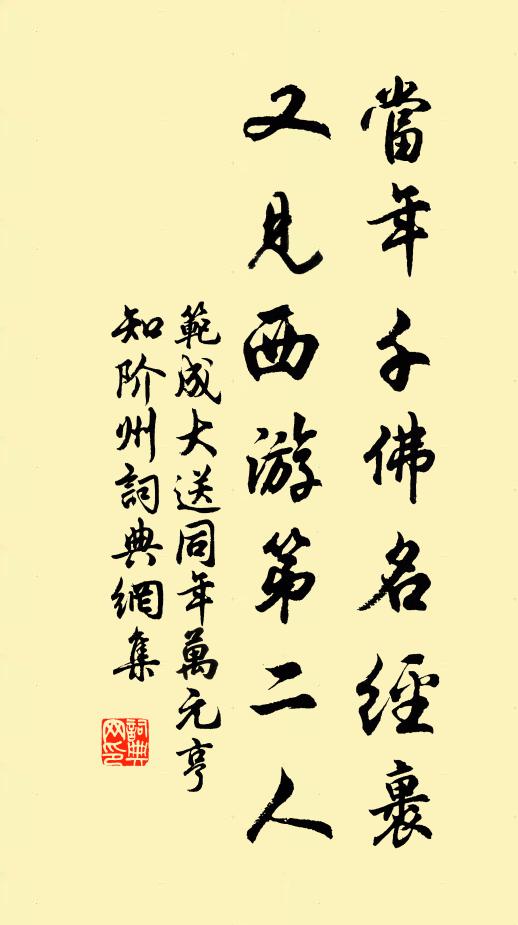 當年千佛名經裹
又見西游第二人
範成大送同年萬元亨
知阶州詞典網集
詞典
网印